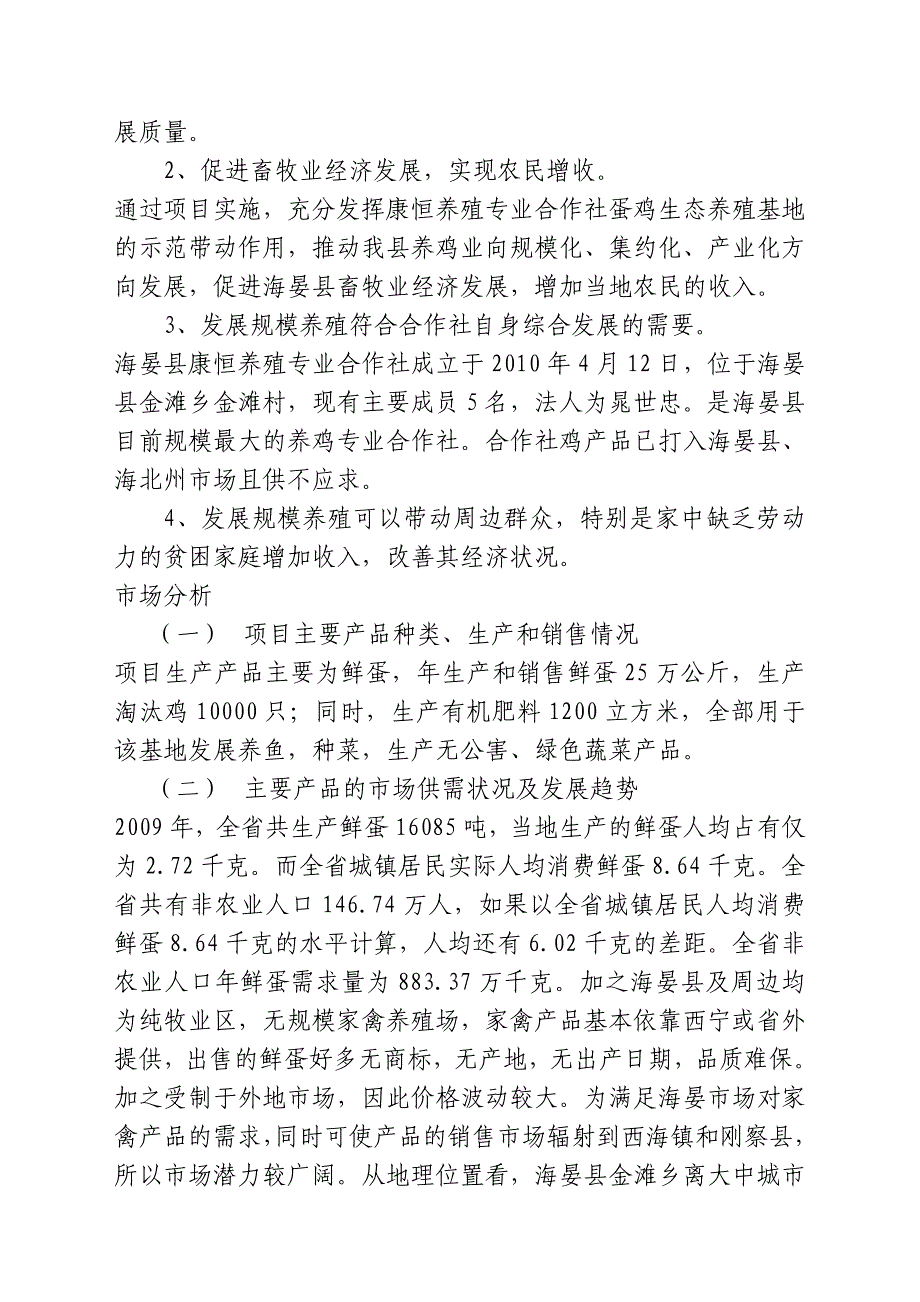 展质量。
2、促进畜牧业经济发展，实现农民增收。
通过项目实施，充分发挥康恒养殖专业合作社蛋鸡生态养殖基地
的示范带动作用，推动我县养鸡业向规模化、集约化、产业化方
向发展，促进海晏县畜牧业经济发展，增加当地农民的收入。
3、发展规模养殖符合合作社自身综合发展的需要。
海晏县康恒养殖专业合作社成立于2010年4月12日，位于海晏
县金滩乡金滩村，现有主要成员5名，法人为晁世忠。是海晏县
目前规模最大的养鸡专业合作社。合作社鸡产品已打入海晏县、
海北州市场且供不应求。
4、发展规模养殖可以带动周边群众，特别是家中缺乏劳动
力的贫困家庭增加收入，改善其经济状况。
市场分析
（一） 项目主要产品种类、生产和销售情况
项目生产产品主要为鲜蛋，年生产和销售鲜蛋25万公斤，生产
淘汰鸡10000只；同时，生产有机肥料1200立方米，全部用于
该基地发展养鱼，种菜，生产无公害、绿色蔬菜产品。
（二） 主要产品的市场供需状况及发展趋势
2009年，全省共生产鲜蛋16085吨，当地生产的鲜蛋人均占有仅
为2.72千克。而全省城镇居民实际人均消费鲜蛋8.64千克。全
省共有非农业人口146.74万人，如果以全省城镇居民人均消费
鲜蛋8.64千克的水平计算，人均还有6.02千克的差距。全省非
农业人口年鲜蛋需求量为883.37万千克。加之海晏县及周边均
为纯牧业区，无规模家禽养殖场，家禽产品基本依靠西宁或省外
提供，出售的鲜蛋好多无商标，无产地，无出产日期，品质难保。
加之受制于外地市场，因此价格波动较大。为满足海晏市场对家
禽产品的需求，同时可使产品的销售市场辐射到西海镇和刚察县，
所以市场潜力较广阔。从地理位置看，海晏县金滩乡离大中城市